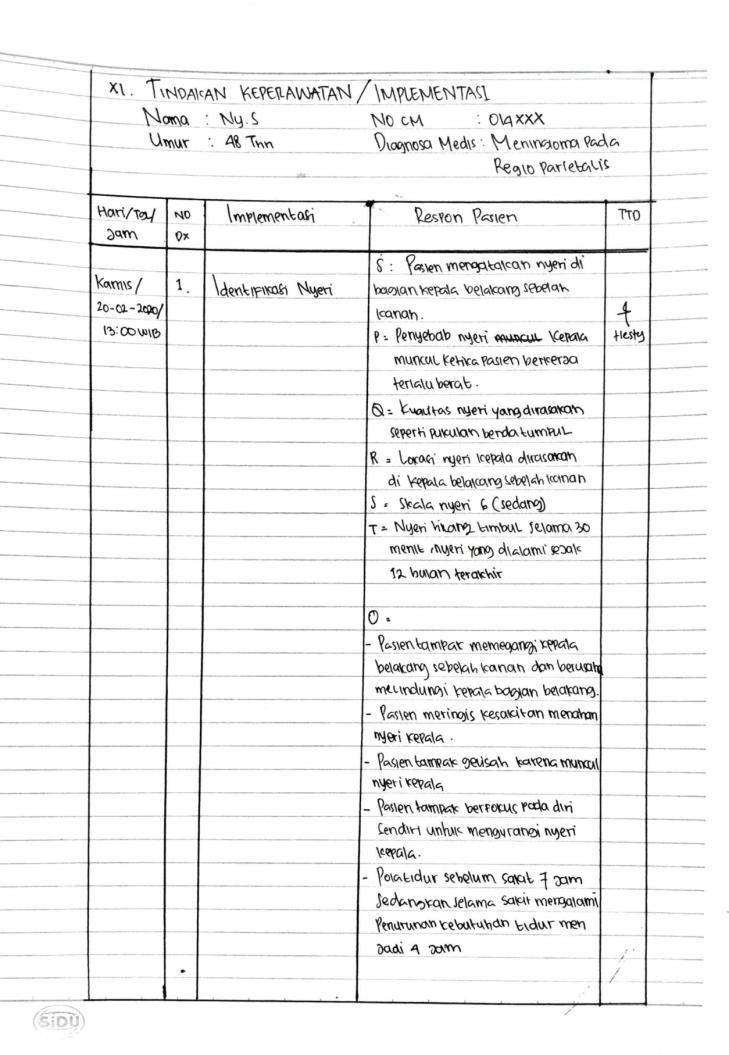 XI. TINDAKAN KEPERAWATAN / IMPLEMENTASI
Nama : Ny. S NO CM : 014XXX
Umur : 48 Thn Diagnosa Medis : Meningioma Pada
Regio Parietalis
Hari/Tgl/ NO Implementasi Respon Pasien TTD
Jam Dx
S : Pasien mengatakan nyeri di
Kamis / 1. Identifikasi Nyeri bagian kepala belakang sebelah
20-02-2020/ kanan.
13:00 WIB P = Penyebab nyeri muncul kepala Hesty
muncul ketika pasien bekerja
terlalu berat.
Q = Kualitas nyeri yang dirasakan
seperti pukulan benda tumpul
R = Lokasi nyeri kepala dirasakan
di kepala belakang sebelah kanan
S = Skala nyeri 6 (sedang)
T = Nyeri hilang timbul selama 30
menit, nyeri yang dialami sejak
12 bulan terakhir
O =
- Pasien tampak memegangi kepala
belakang sebelah kanan dan berusaha
melindungi kepala bagian belakang.
- Pasien meringis kesakitan menahan
nyeri kepala.
- Pasien tampak gelisah karena muncul
nyeri kepala
- Pasien tampak berfokus pada diri
sendiri untuk mengurangi nyeri
kepala.
- Pola tidur sebelum sakit 7 jam
sedangkan selama sakit mengalami
Penurunan kebutuhan tidur men
jadi 4 jam
SiDU